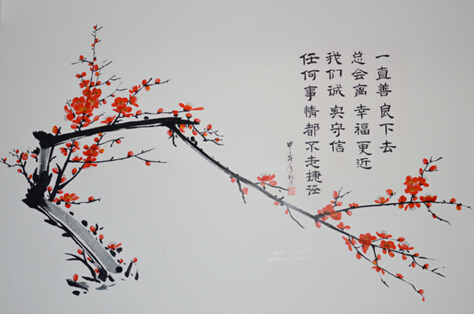 一直善良下去
总会离幸福更近
我们诚实守信
任何事情都不走捷径